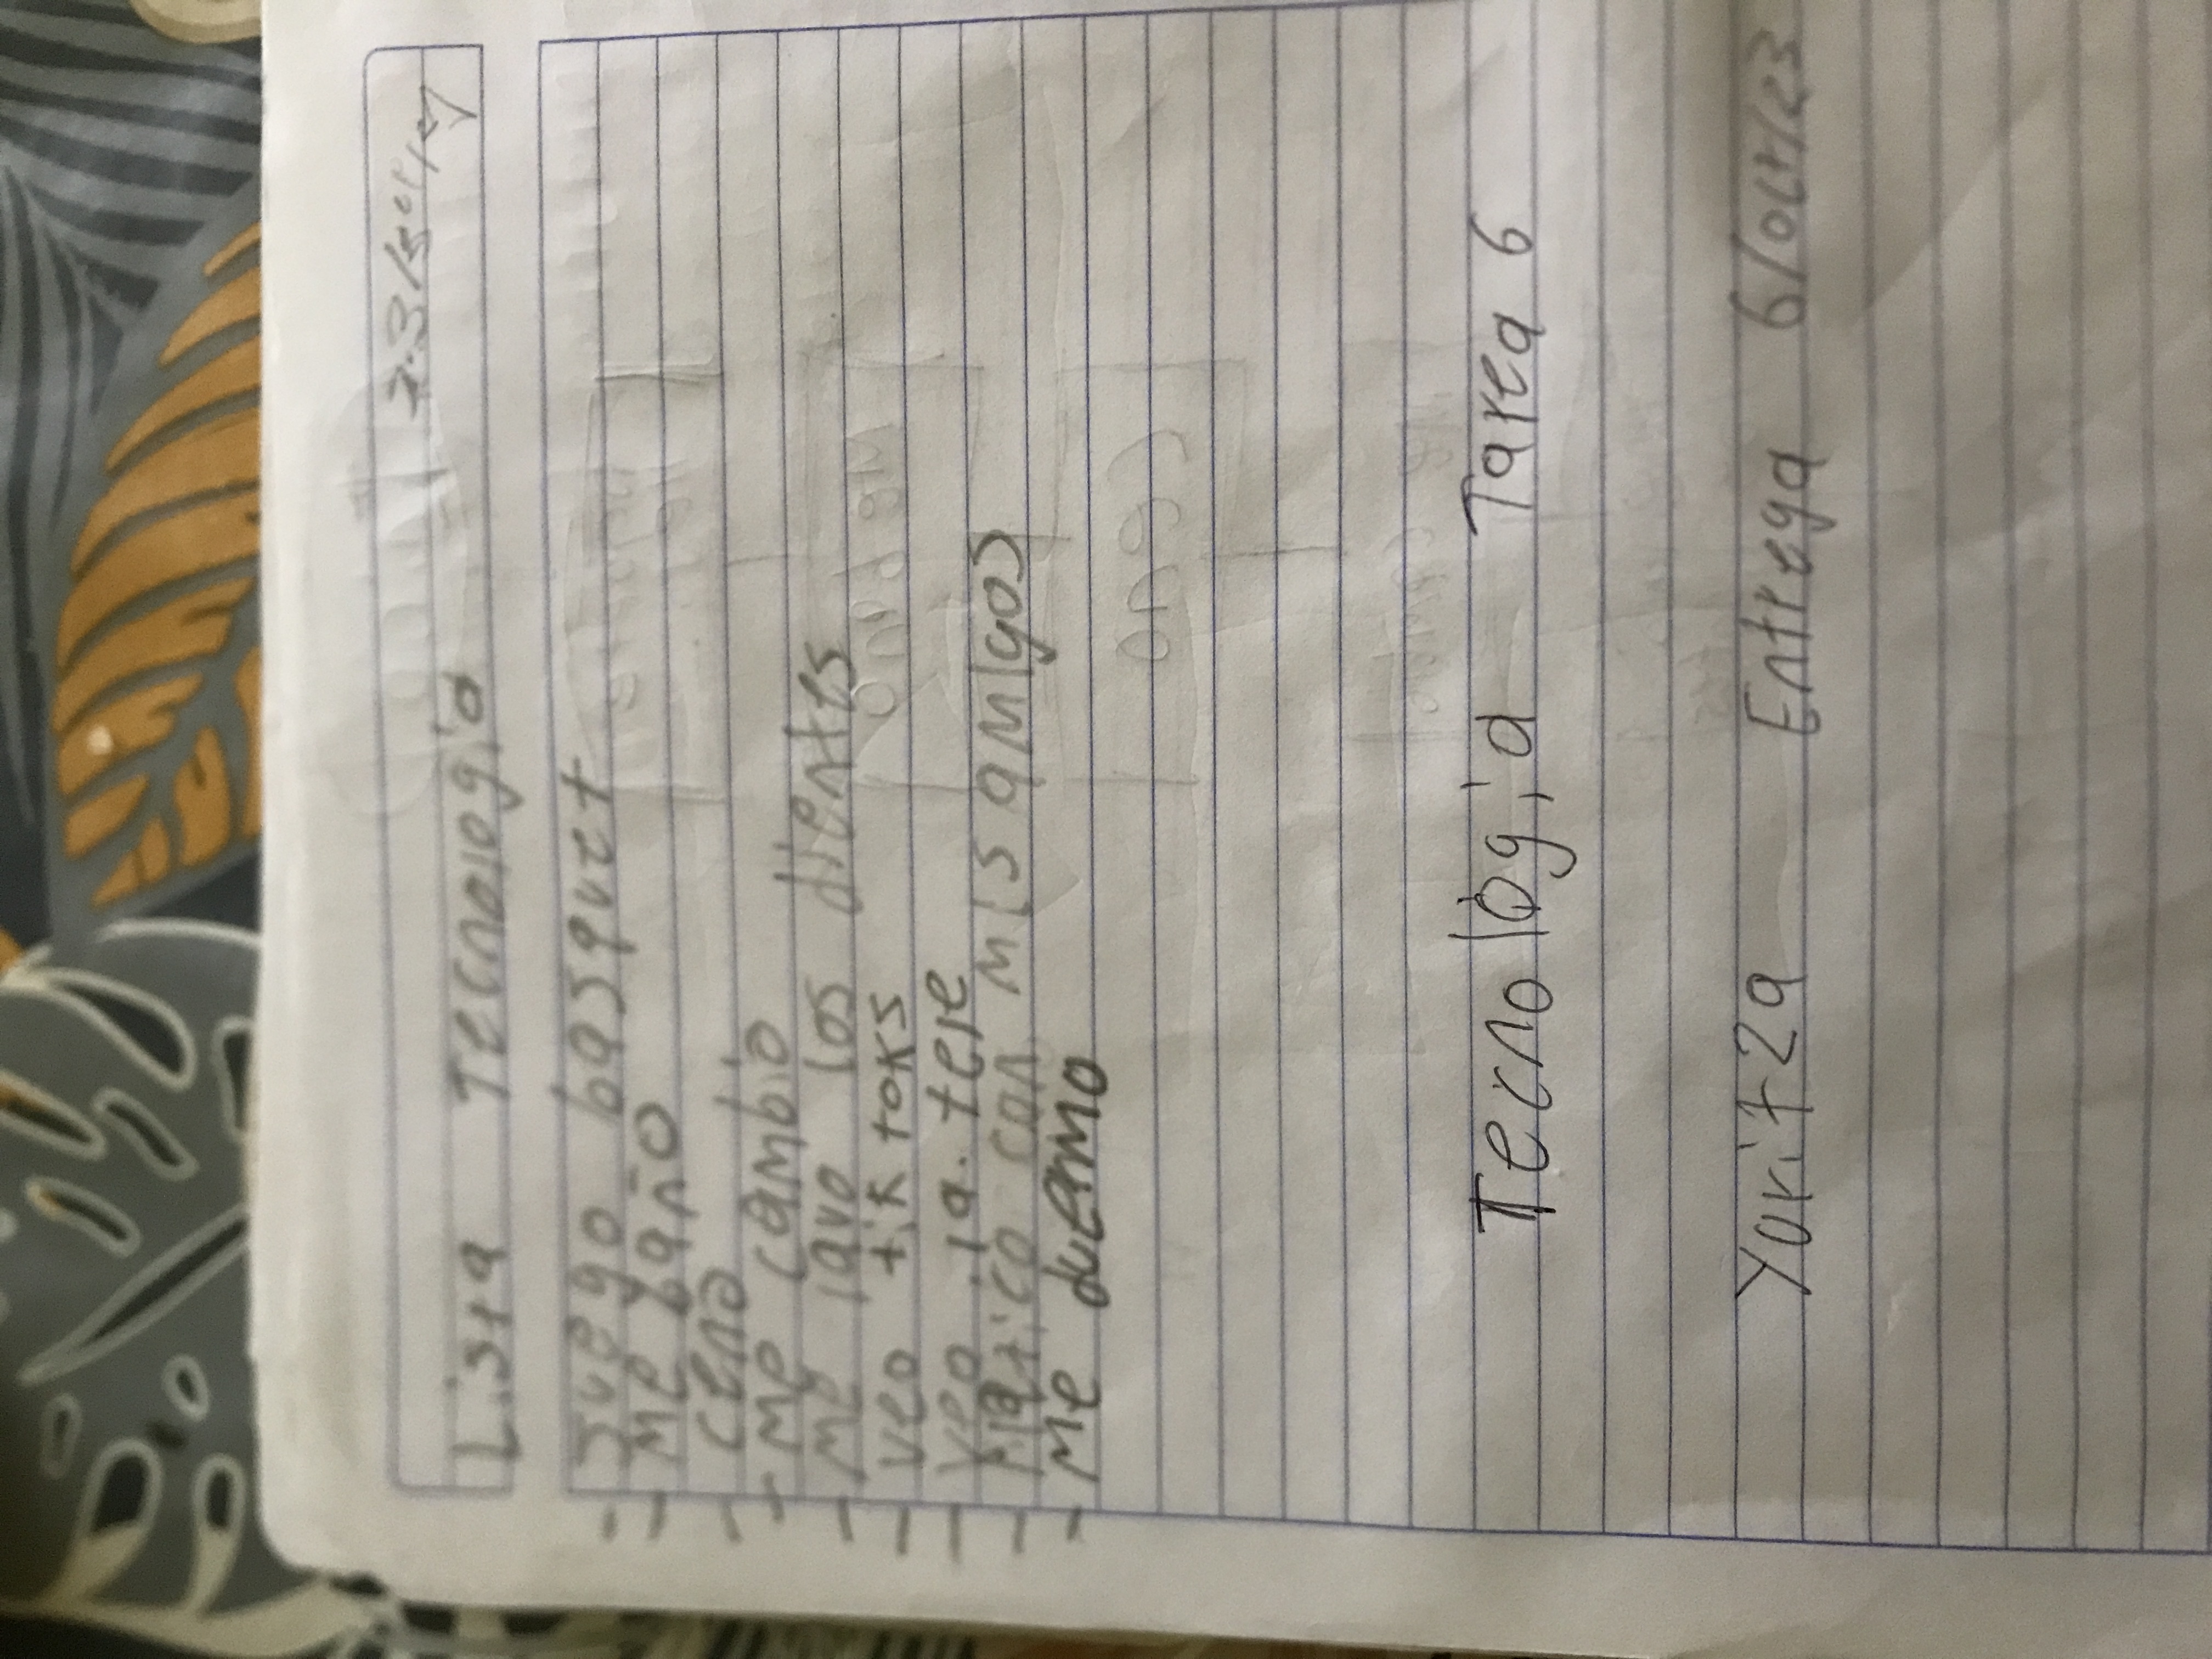 Lista Tecnología
- Juego basquet
- Me baño
- Ceno
- Me cambio
- Me lavo los dients
- Veo tik toks
- Veo la tele
- Platico con mis amigos
- Me duermo
Tecnología Tarea 6
Yaritza Entrega 6/oct/23